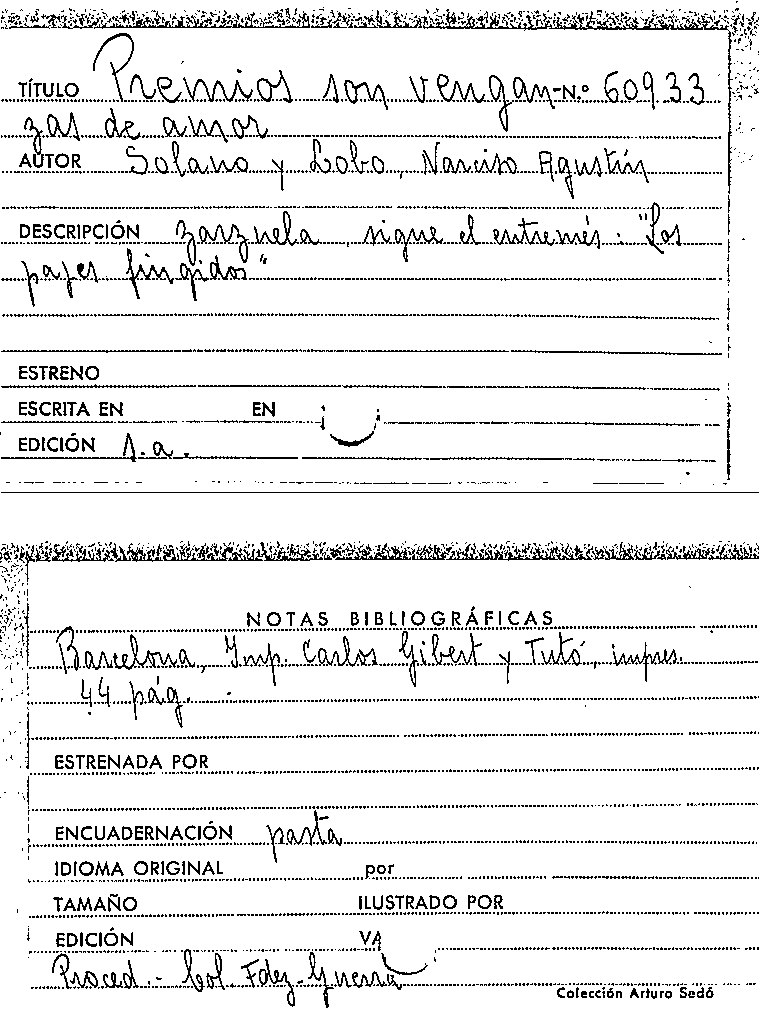 TÍTULO Premios son vengan- N.º 60933
zas de amor
AUTOR Solano y Lobo, Narciso Agustín
DESCRIPCIÓN zarzuela, sigue el entremés: "Los
pajes fingidos"
ESTRENO
ESCRITA EN EN
EDICIÓN s.a.
NOTAS BIBLIOGRÁFICAS
Barcelona, Imp. Carlos Gibert y Tutó, impres.
44 pág.
ESTRENADA POR
ENCUADERNACIÓN pasta
IDIOMA ORIGINAL por
TAMAÑO ILUSTRADO POR
EDICIÓN VA
Proced.- Col. Fdez-Guerra
Colección Arturo Sedó